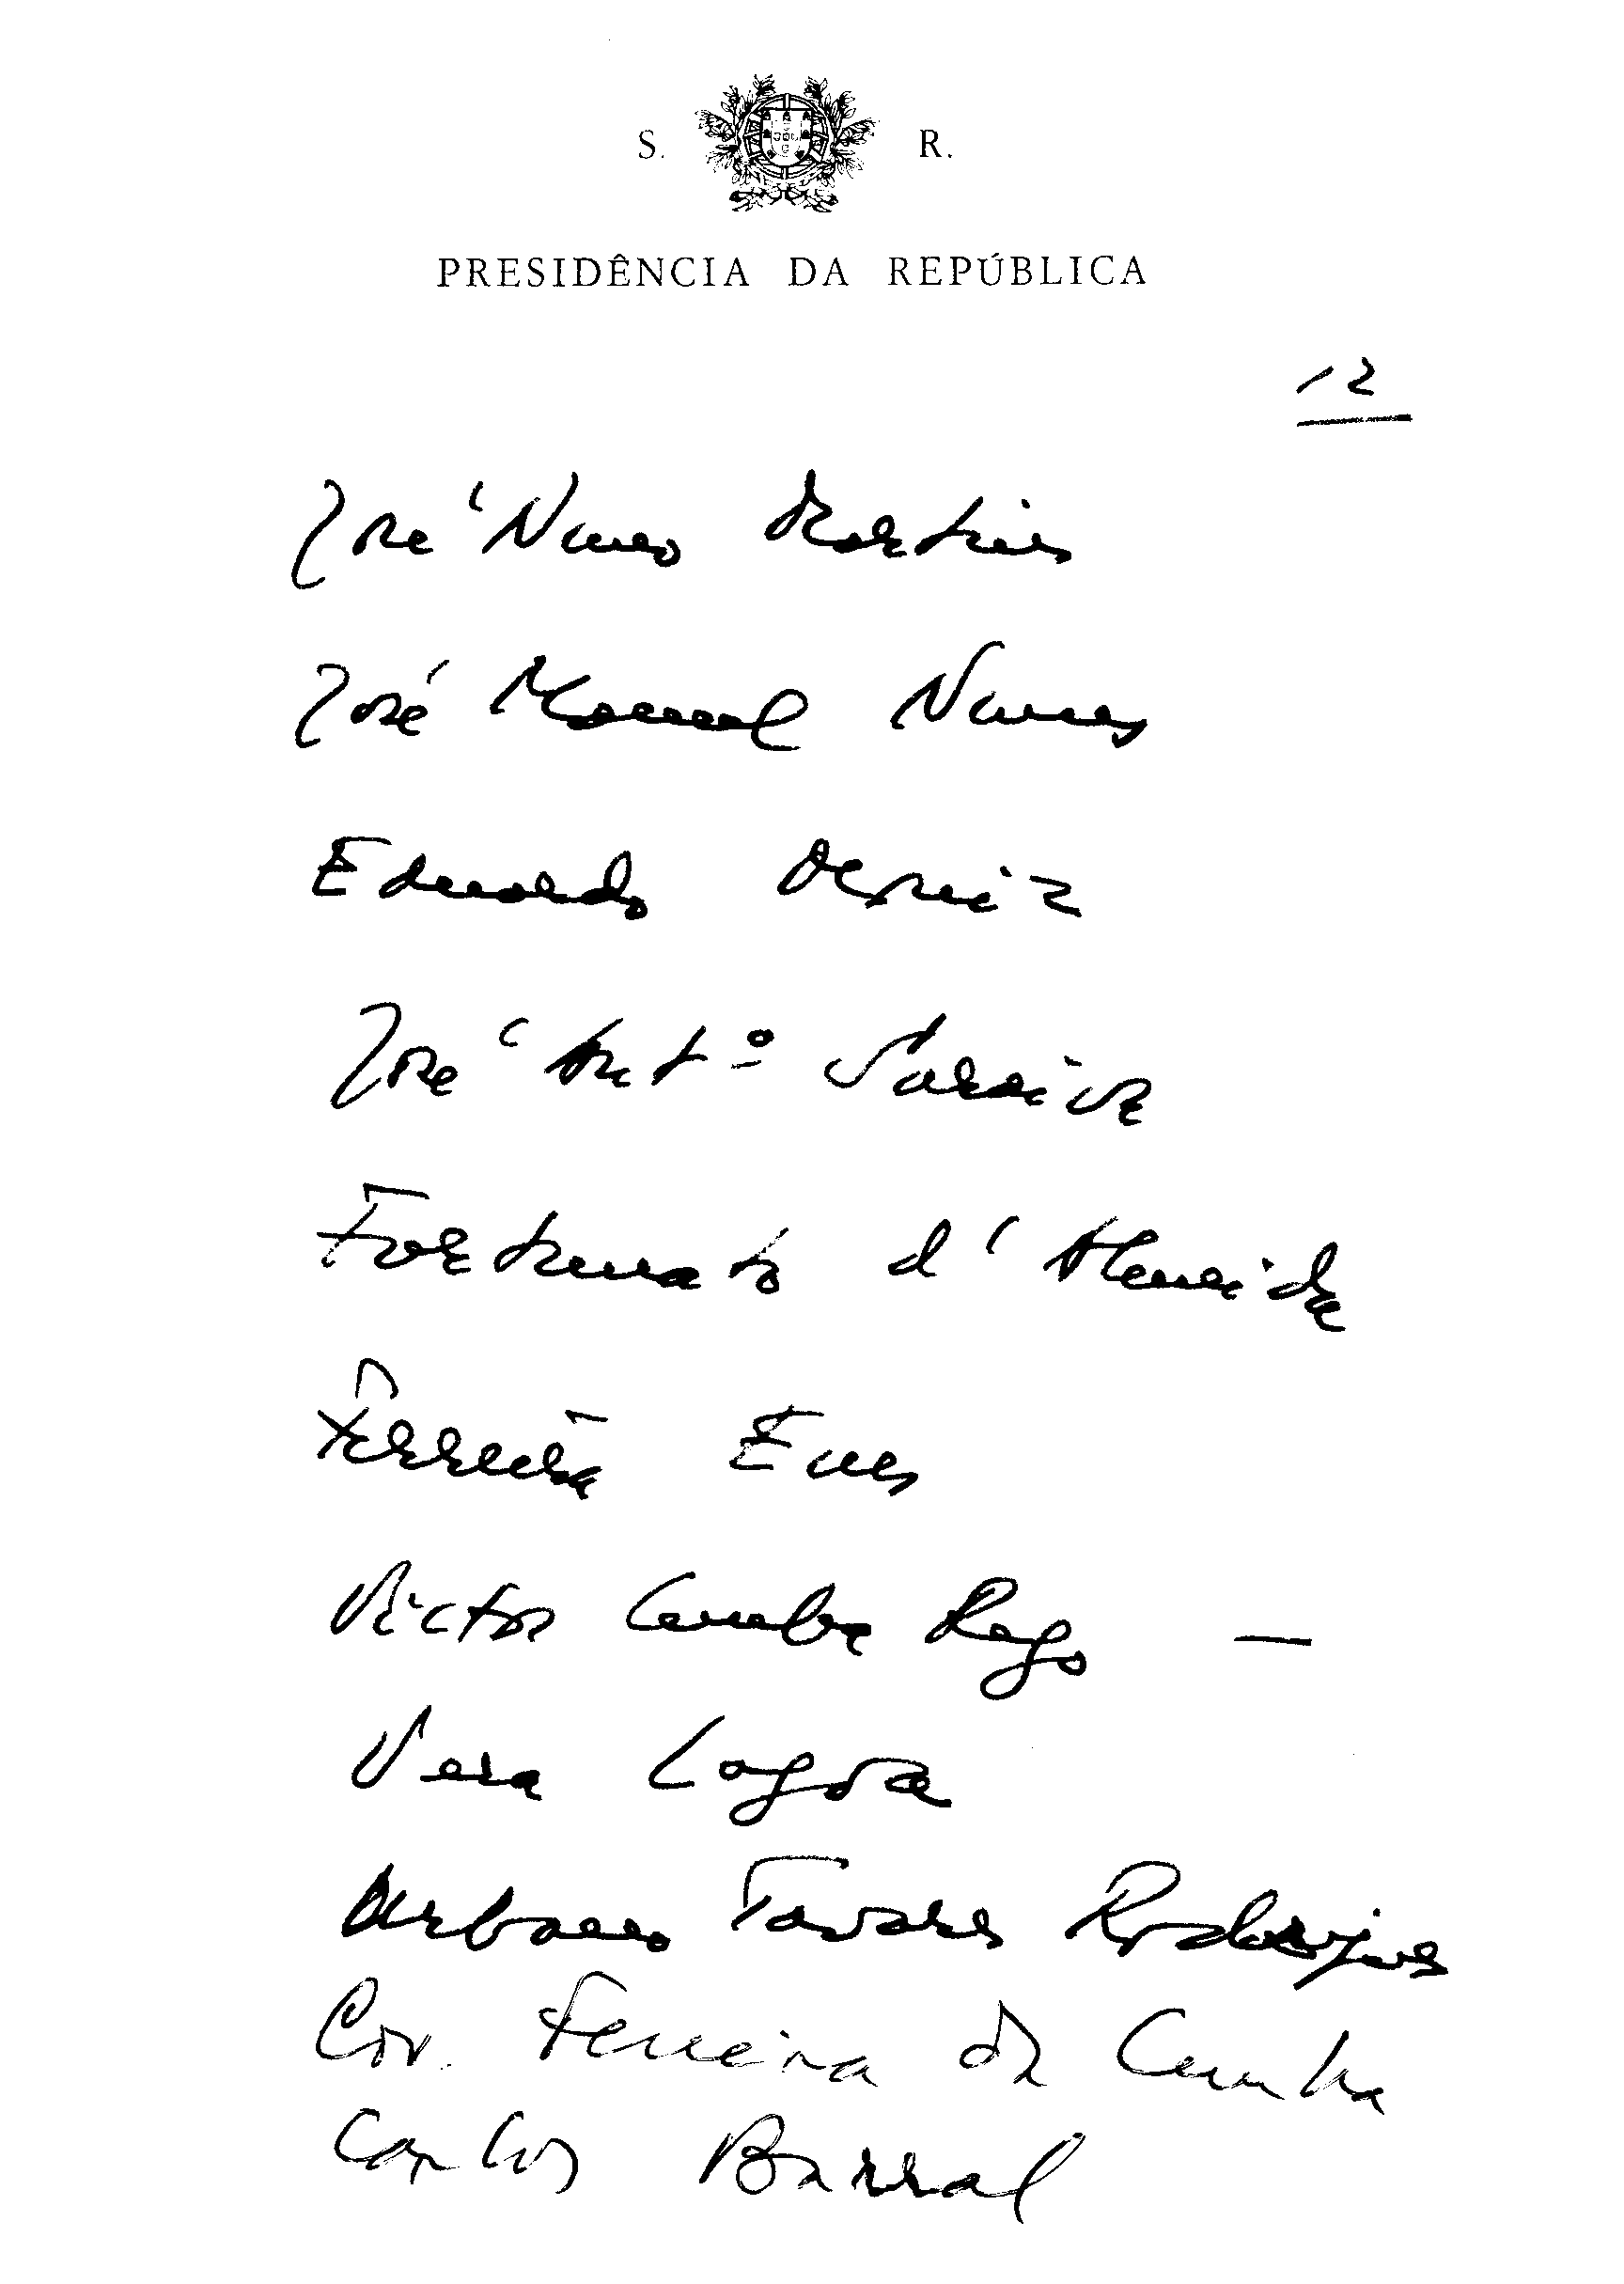 S. R.
PRESIDÊNCIA DA REPÚBLICA
12
José Nuno Martins
José Manuel Nunes
Eduardo
José Antº Saraiva
Fortunato d'Almeida
Ferreira Enes
Victor Cunha Rego —
Vera Lagoa
Urbano Tavares Rodrigues
Cor. Ferreira da Cunha
Carlos Barral